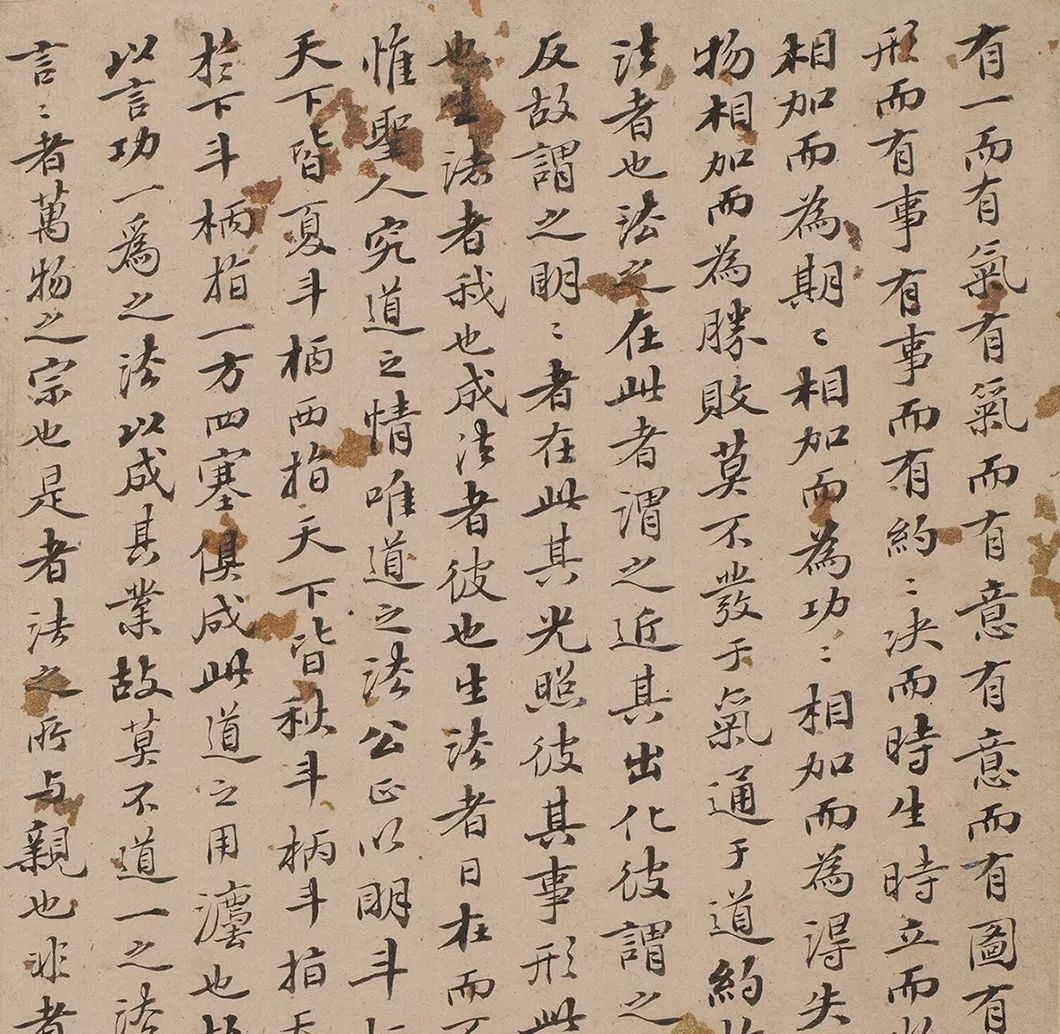 有一而有氣有氣而有意有意而有圖有
形而有事有事而有約〻決而時生時立而
相加而為期〻相加而為功〻相加而為得失
物相加而為勝敗莫不發于氣通于道約
法者也法之在此者謂之近其出化彼謂之
反故謂之明〻者在此其光照彼其事形此
也生法者我也成法者彼也生法者日在而不
惟聖人究道之情唯道之法公正以明斗
天下皆夏斗柄西指天下皆秋斗柄斗指天
於下斗柄指一方四塞俱成此道之用灋也故
以言功一爲之法以成其業故莫不道一之法
言〻者萬物之宗也是者法之所与親也非者